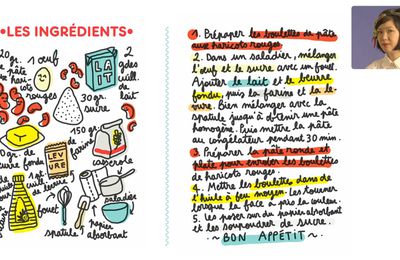 •LES INGRÉDIENTS•
20gr.
de pâte
aux hari-
cots
rouges
1 œuf
LAIT
2
gdes
cuill.
de lait
30 gr.
sucre
150 gr.
de farine
20 gr. de
beurre fondu
LEVURE
1 gt
cuill.
de levure
casserole
saladier
huile
fouet
spatule
papier
absorbant
1. Préparer les boulettes de pâte
aux haricots rouges.
2. Dans un saladier, mélanger
l'œuf et le sucre avec un fouet.
Ajouter le lait et le beurre
fondu, puis la farine et la le-
vure. Bien mélanger avec la
spatule jusqu'à obtenir une pâte
homogène. Puis mettre la pâte
au congélateur pendant 30 min.
3. Préparer la pâte ronde et
plate pour enrober les boulettes
de haricots rouges.
4. Mettre les boulettes dans de
l'huile à feu moyen. Les tourner
lorsque la face a pris la couleur.
5. Les poser sur du papier absorbant
et les saupoudrer de sucre.
~ BON APPÉTIT ~